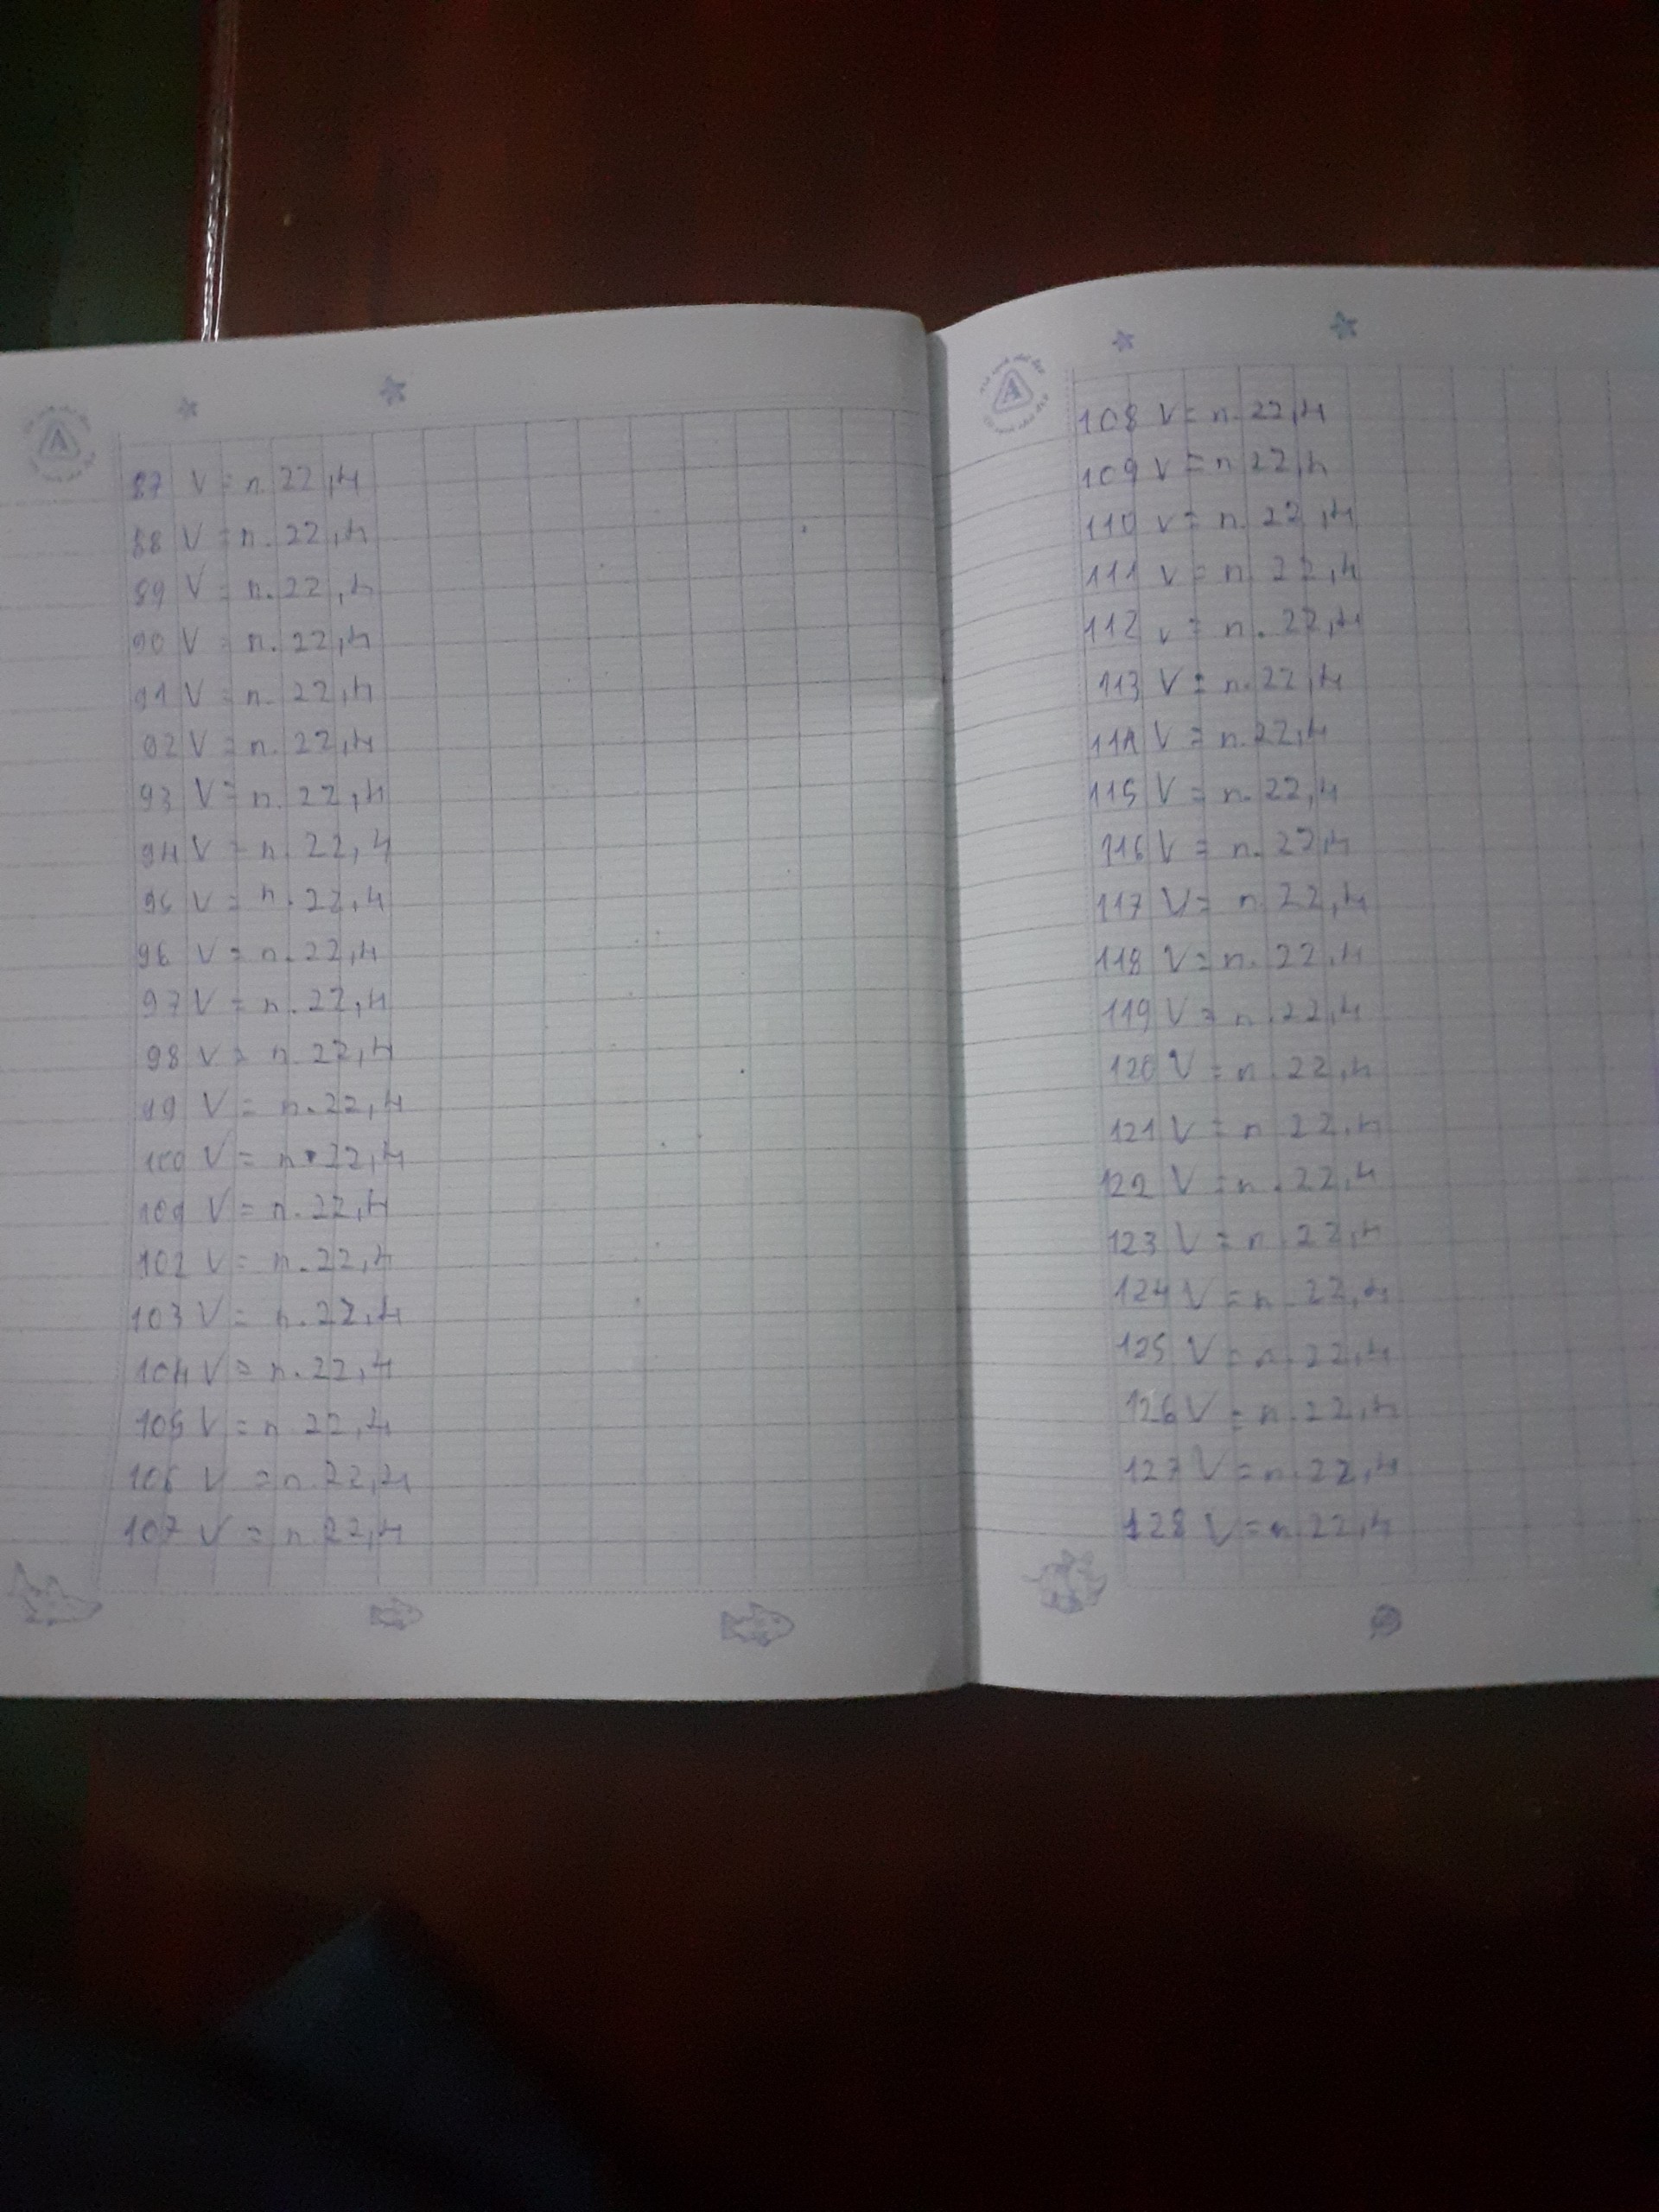 87 V = n. 22,4
88 V = n. 22,4
89 V = n. 22,4
90 V = n. 22,4
91 V = n. 22,4
92 V = n. 22,4
93 V = n. 22,4
94 V = n. 22,4
95 V = n. 22,4
96 V = n. 22,4
97 V = n. 22,4
98 V = n. 22,4
99 V = n. 22,4
100 V = n. 22,4
101 V = n. 22,4
102 V = n. 22,4
103 V = n. 22,4
104 V = n. 22,4
105 V = n 22,4
106 V = n. 22,4
107 V = n 22,4
108 V = n. 22,4
109 V = n 22,4
110 V = n. 22,4
111 V = n 22,4
112 V = n. 22,4
113 V = n. 22,4
114 V = n. 22,4
115 V = n. 22,4
116 V = n. 22,4
117 V = n 22,4
118 V = n. 22,4
119 V = n. 22,4
120 V = n. 22,4
121 V = n 22,4
122 V = n. 22,4
123 V = n. 22,4
124 V = n. 22,4
125 V = n. 22,4
126 V = n. 22,4
127 V = n. 22,4
128 V = n. 22,4